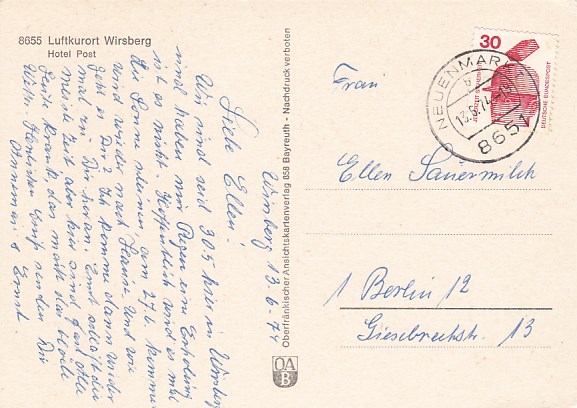 8655 Luftkurort Wirsberg
Hotel Post
Wirsberg 13-6-74
Liebe Ellen!
Wir sind seid 30.5 hier in Wirsberg
und haben nur Regen eine Erholung
ist es nicht. Hoffentlich wird es mal
die Sonne scheinen, am 27.6. kommen
wir wieder nach Hause. Und wie
geht Dir? Ich komme dann wieder
mal zu Dir heran. Ernst schläft die
meiste Zeit aber hier sind fast alle
Leute krank das macht das
Wetter. Herzlichen Gruß senden Dir
Annemarie & Ernst.
Oberfränkischer Ansichtskartenverlag 858 Bayreuth - Nachdruck verboten
OA
B
30
DEUTSCHE BUNDESPOST
NEUENMARKT
13.6.74
8651
Frau
Ellen Sauermilch
1 Berlin 12
Giesebrechtstr. 13